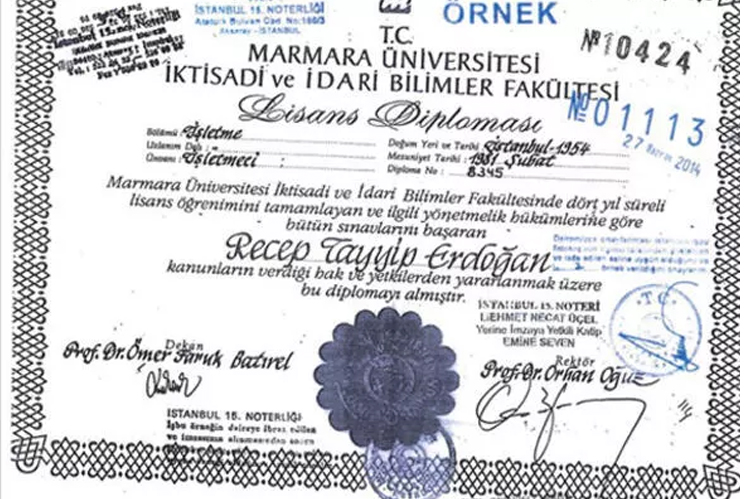 İSTANBUL 15. NOTERLİĞİ
Atatürk Bulvarı Cad. No:160/3
Aksaray - İSTANBUL
ÖRNEK
Nº 10424
T.C.
MARMARA ÜNİVERSİTESİ
İKTİSADİ ve İDARİ BİLİMLER FAKÜLTESİ
Lisans Diploması
Nº 01113
27 Haziran 2014
Bölümü : İşletme
Uzlanım Dalı : -
Ünvanı : İşletmeci
Doğum Yeri ve Tarihi : İstanbul-1954
Mezuniyet Tarihi : 1981 Şubat
Diploma No : 8345
Marmara Üniversitesi İktisadi ve İdari Bilimler Fakültesinde dört yıl süreli
lisans öğrenimini tamamlayan ve ilgili yönetmelik hükümlerine göre
bütün sınavlarını başaran
Recep Tayyip Erdoğan
kanunların verdiği hak ve yetkilerden yararlanmak üzere
bu diplomayı almıştır.
İSTANBUL 15. NOTERİ
MEHMET NECAT ÜÇEL
Yerine İmzaya Yetkili Katip
EMİNE SEVEN
T.C.
Dekan
Prof. Dr. Ömer Faruk Batırel
Rektör
Prof. Dr. Orhan Oğuz
İSTANBUL 15. NOTERLİĞİ
İşbu örneğin daireye ibraz edilen